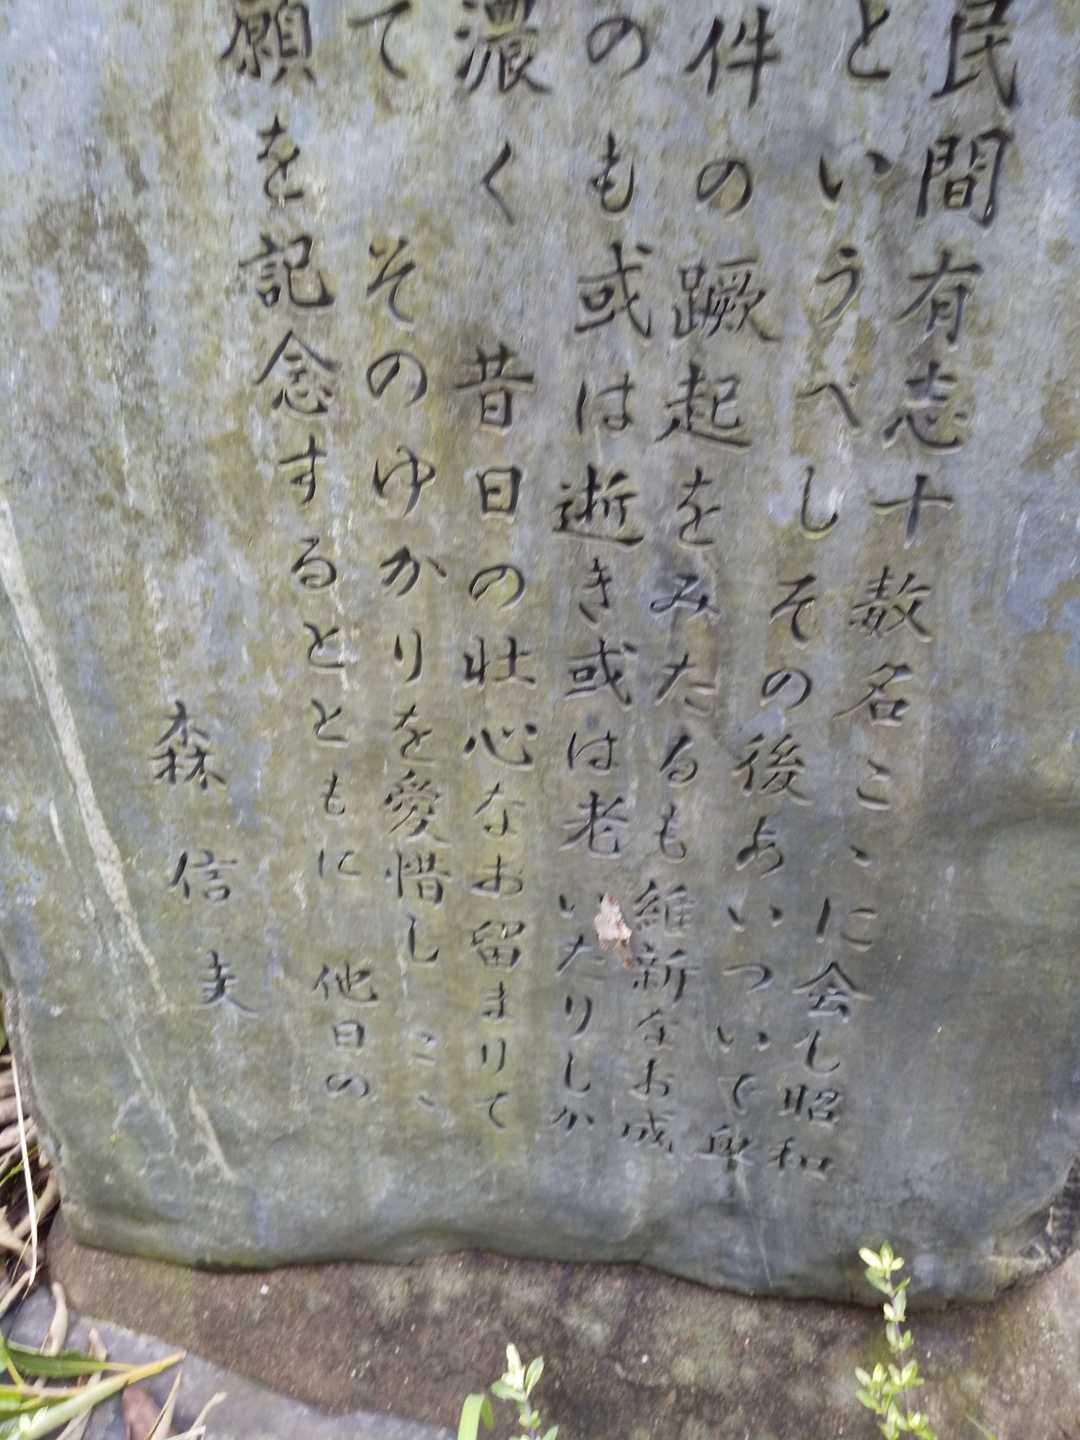 民間有志十数名こゝに会し昭和
というべしその後あいついで
件の蹶起をみたるも維新なお成
のも或は逝き或は老いたりしか
濃く 昔日の壮心なお留まりて
て そのゆかりを愛惜し こゝ
願を記念するとともに 他日の
森 信